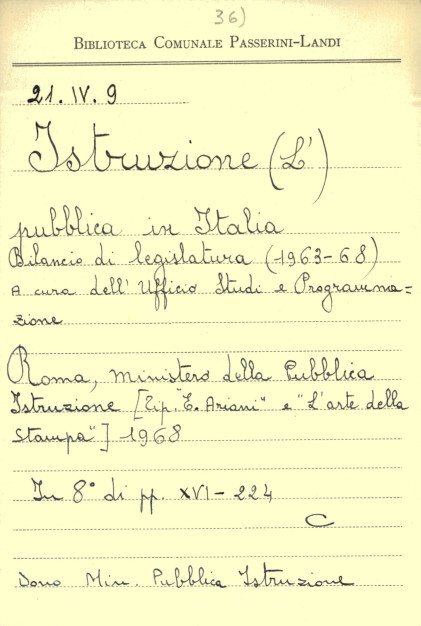 36)
BIBLIOTECA COMUNALE PASSERINI-LANDI
21. IV. 9
Istruzione (L')
pubblica in Italia
Bilancio di legislatura (1963-68)
A cura dell'Ufficio Studi e Programma=
zione
Roma, Ministero della Pubblica
Istruzione [Tip. "E. Ariani" e "L'arte della
Stampa"] 1968
In 8° di pp. XVI-224
C
Dono Min. Pubblica Istruzione